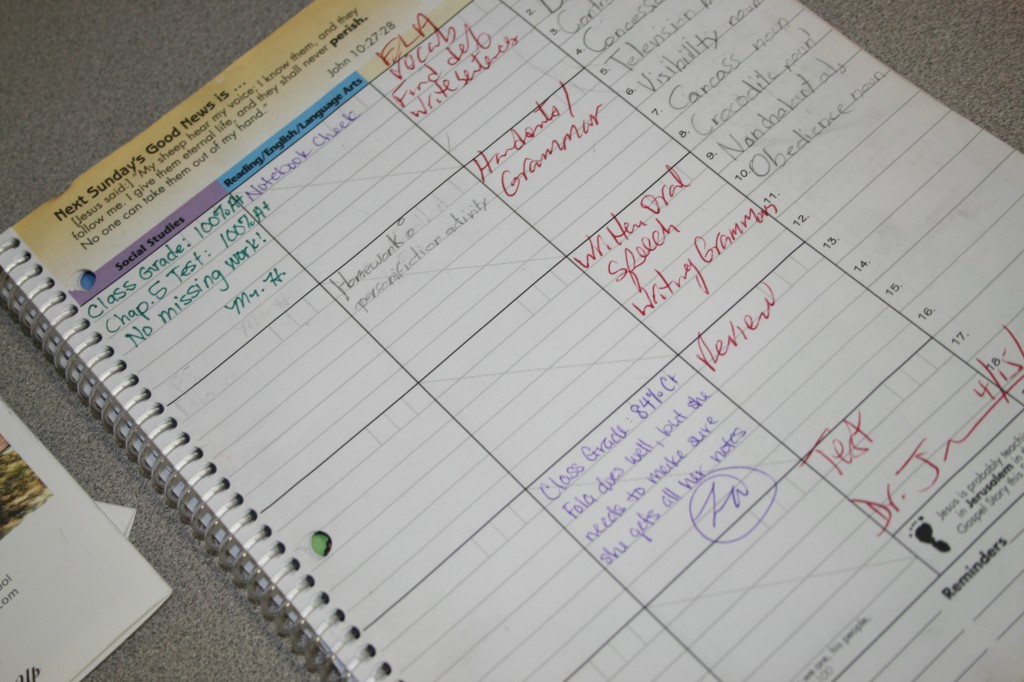 Next Sunday's Good News is ...
[Jesus said:] "My sheep hear my voice; I know them, and they
follow me. I give them eternal life, and they shall never perish.
No one can take them out of my hand."
John 10:27-28
Social Studies
Reading/English/Language Arts
Class Grade: 100% A+
Chap. 5 Test: 100% A+
No missing work!
Mr. H
Notebook Check
Homework:
personifiction activity
Class Grade: 84% C+
Fola does well, but she
needs to make sure
she gets all her notes
ELA
Vocab
Find def
Write sentences
Handouts/
Grammar
Written Oral
Speech
Writing Grammar
Review
Test
Dr. J
4/15/
2.
3.
4. Concession
5. Television
6. Visibility noun
7. Carcass noun
8. Crocodile noun
9. Nonchalant
10. Obedience noun
11.
12.
13.
14.
15.
16.
17.
18.
Jesus is probably
in Jerusalem
Gospel Story this
Reminders
we are, his people,
100